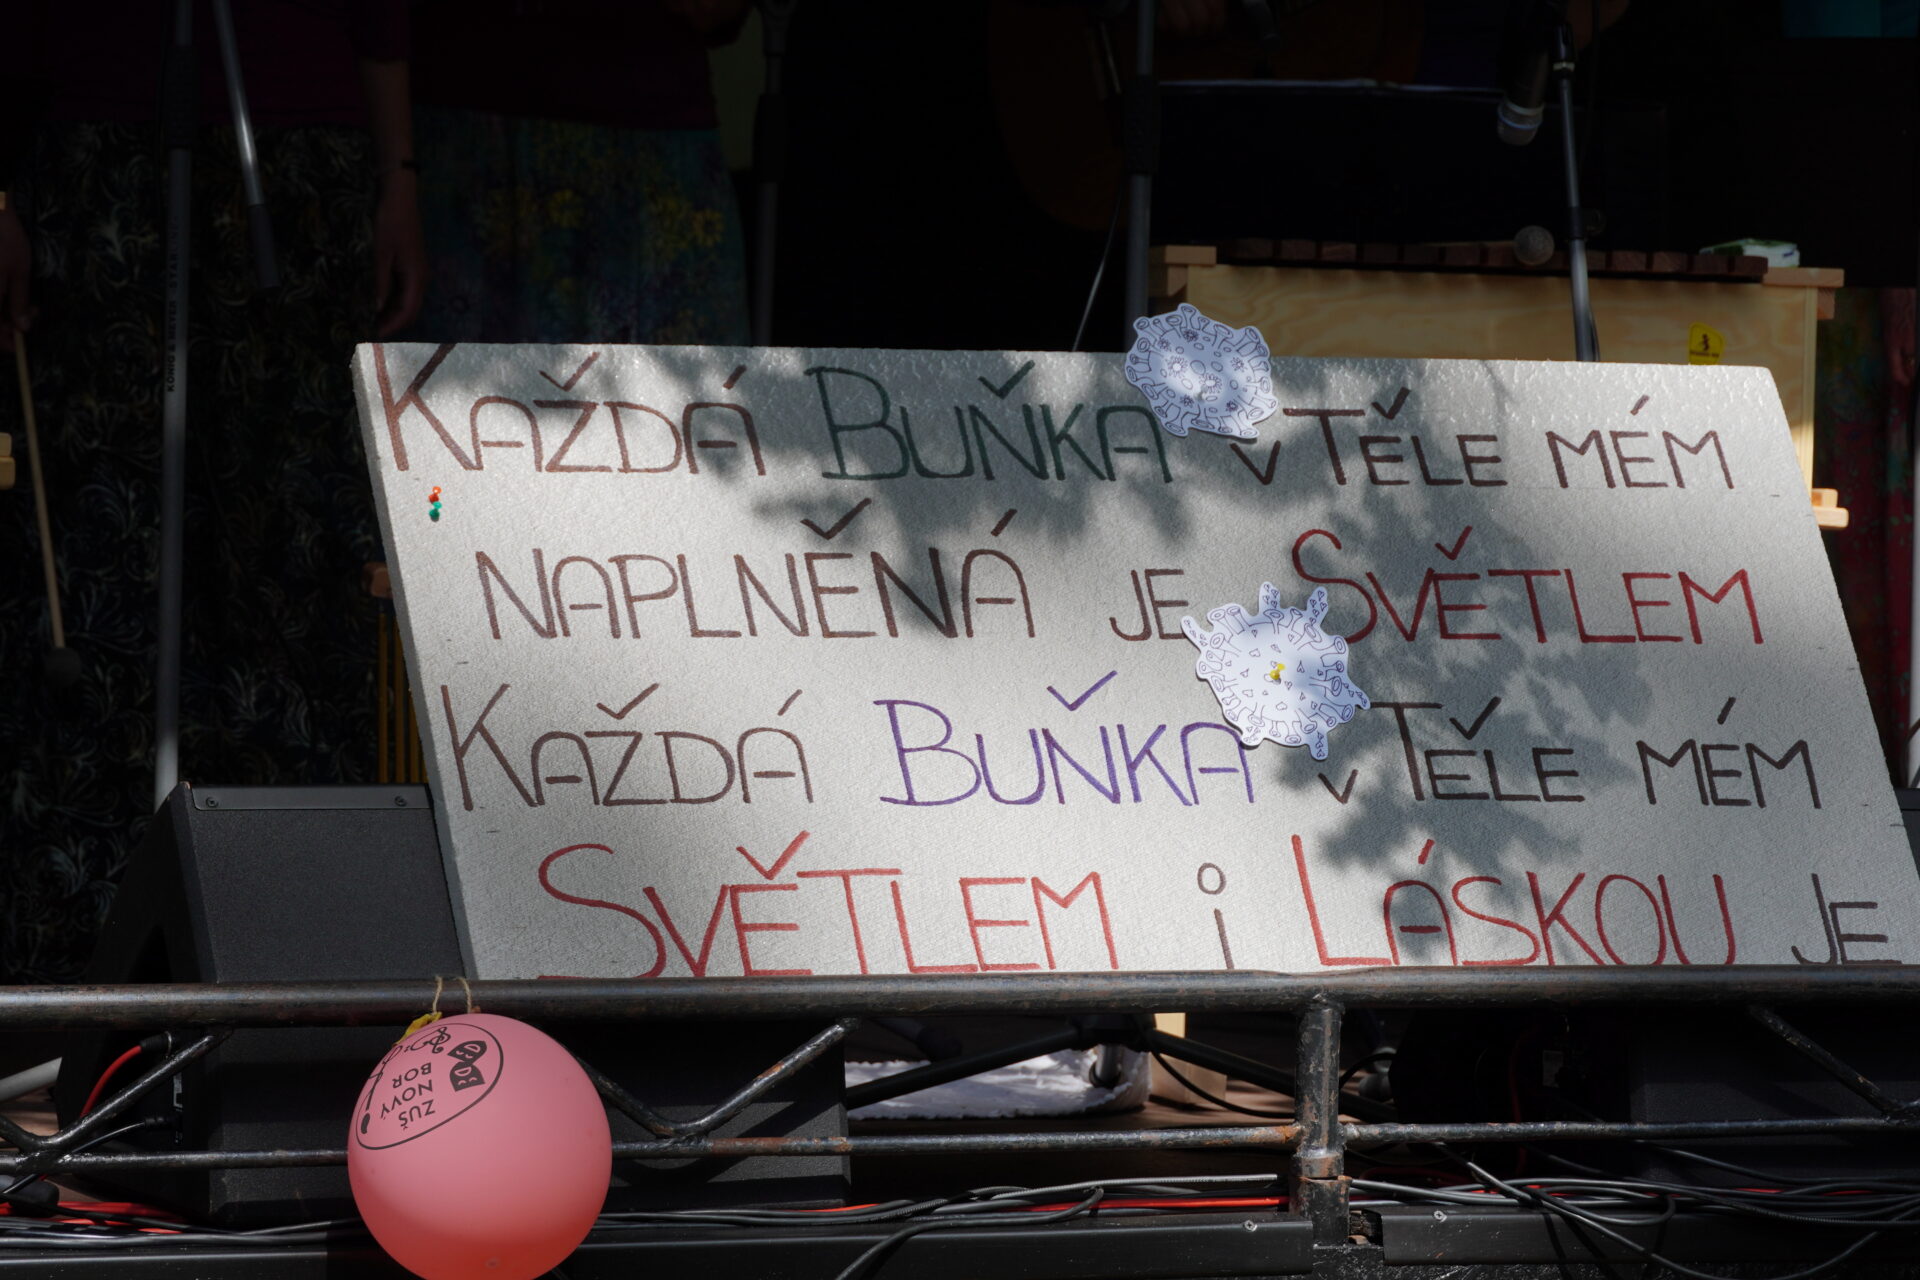 KAŽDÁ BUŇKA v TĚLE MÉM
NAPLNĚNÁ JE SVĚTLEM
KAŽDÁ BUŇKA v TĚLE MÉM
SVĚTLEM i LÁSKOU JE
ZUŠ
NOVÝ
BOR
KÖNIG & MEYER